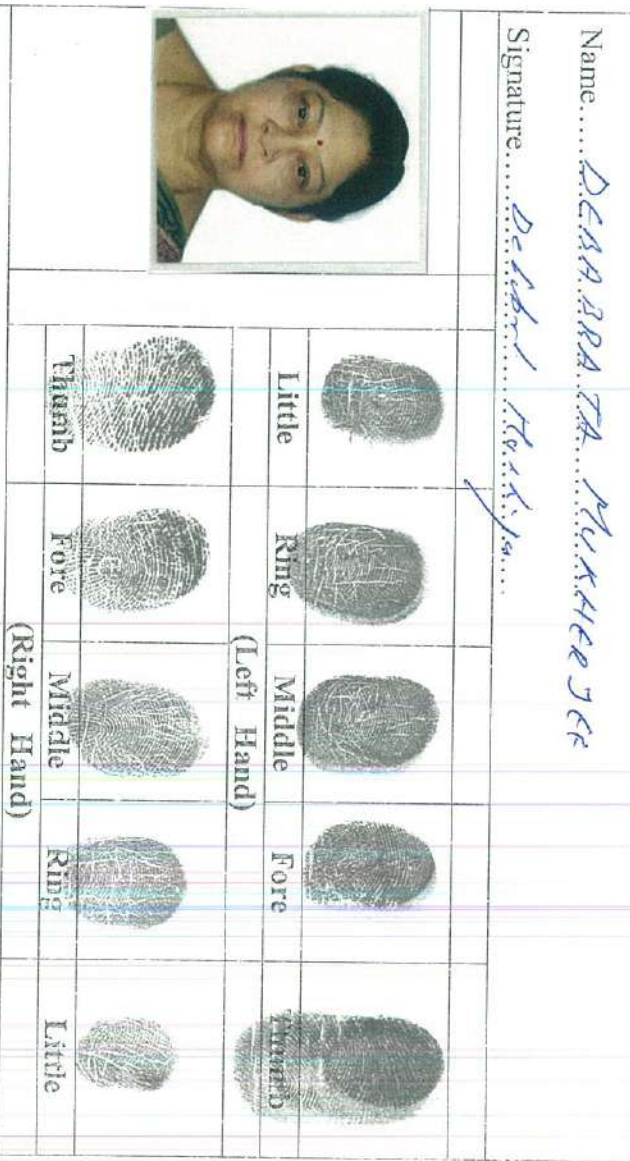 Name..... DEBABRATA MUKHERJEE
Signature.....
Little Ring Middle Fore Thumb
(Left Hand)
Thumb Fore Middle Ring Little
(Right Hand)